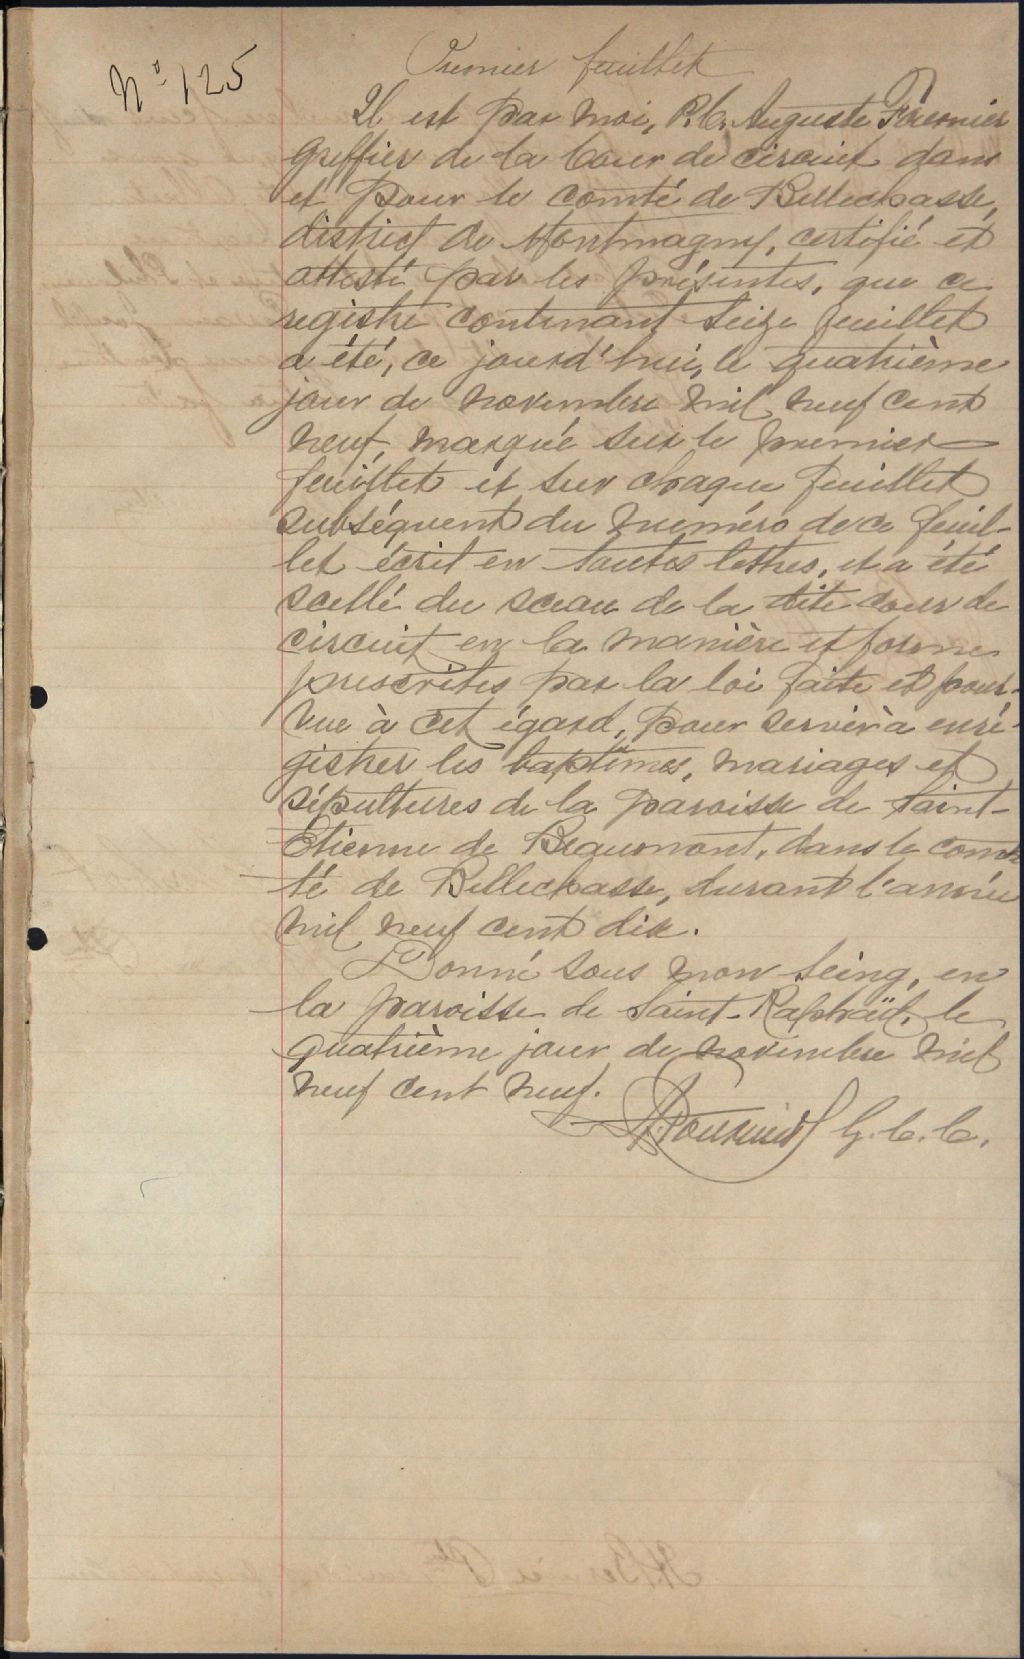 No 125
Premier feuillet
Il est par moi, P. C. Auguste Fournier
Greffier de la Cour de circuit dans
et pour le comté de Bellechasse,
district de Montmagny, certifié et
attesté par les présentes, que ce
registre contenant seize feuillets
a été, ce jourd'hui, le quatrième
jour de novembre mil neuf cent
neuf, marqué sur le premier
feuillet et sur chaque feuillet
subséquent du numéro de ce feuil-
let écrit en toutes lettres, et a été
scellé du sceau de la dite cour de
circuit en la manière et forme
prescrites par la loi faite et pour-
vue à cet égard, pour servir à enré-
gistrer les baptêmes, mariages et
sépultures de la paroisse de Saint-
Etienne de Beaumont, dans le com-
té de Bellechasse, durant l'année
mil neuf cent dix.
Donné sous mon seing, en
la paroisse de Saint-Raphaël, le
quatrième jour de novembre mil
neuf cent neuf.
Fournier G. C. C.